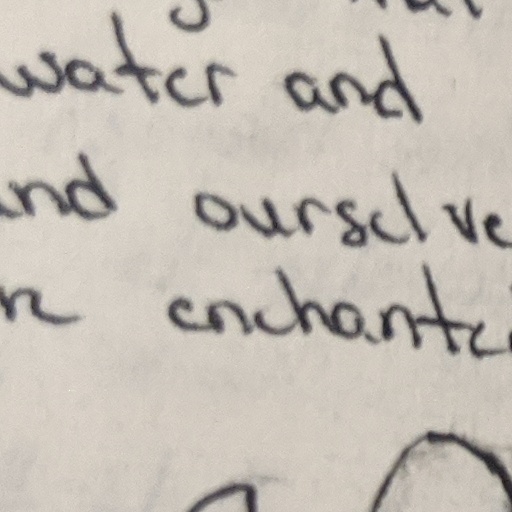 water and
nd ourselve
n enchante